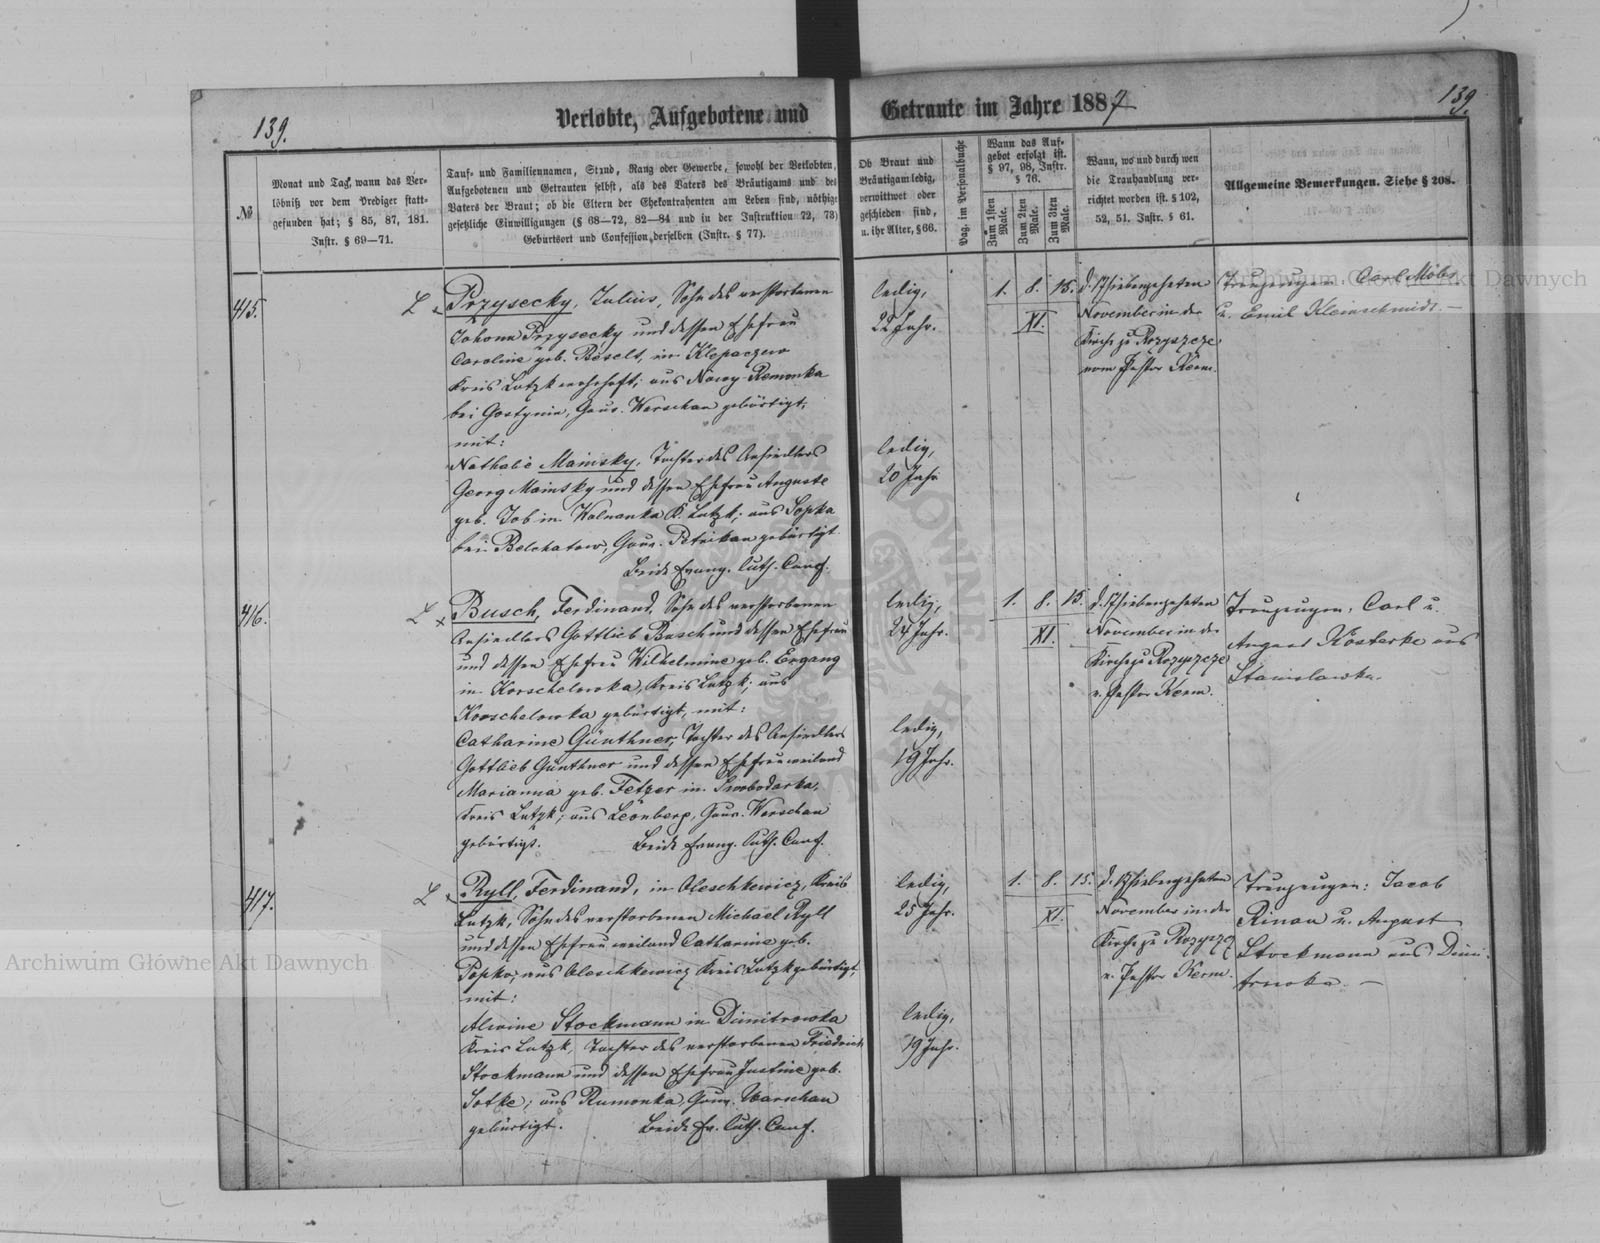 139.
Verlobte, Aufgebotene und
Getraute im Jahre 1887
139.
№
Monat und Tag, wann das Ver-
löbniß vor dem Prediger statt-
gefunden hat; § 85, 87, 181.
Instr. § 69—71.
Tauf- und Familiennamen, Stand, Rang oder Gewerbe, sowohl der Verlobten,
Aufgebotenen und Getrauten selbst, als des Vaters des Bräutigams und des
Vaters der Braut; ob die Eltern der Ehekontrahenten am Leben sind, nöthige
gesetzliche Einwilligungen (§ 68—72, 82—84 und in der Instruktion 72, 73)
Geburtsort und Confession derselben (Instr. § 77).
Ob Braut und
Bräutigam ledig,
verwittwet oder
geschieden sind,
u. ihr Alter, § 66.
Pag. im Personalbuche
Wann das Auf-
gebot erfolgt ist.
§ 97, 98, Instr.
§ 76.
Zum 1sten Male.
Zum 2ten Male.
Zum 3ten Male.
Wann, wo und durch wen
die Trauhandlung ver-
richtet worden ist. § 102,
52, 51. Instr. § 61.
Allgemeine Bemerkungen. Siehe § 208.
415.
L
Przysecky, Julius, Sohn des verstorbenen
Johann Przysecky und dessen Ehefrau
Caroline geb. Beselt, in Klepaczew
Kreis Lutzk wohnhaft; aus Nowy-Remonka
bei Gostynin, Gouv. Warschau gebürtigt;
mit:
Nathalie Mainsky, Tochter des Ansiedlers
Georg Mainsky und dessen Ehefrau Auguste
geb. Job in Wolnanka K. Lutzk; aus Sopka
bei Belchatow, Gouv. Petrikau gebürtigt
Beide Evang. luth. Conf.
ledig,
22 Jahr.
ledig,
20 Jahr
1. 8. 15.
XI.
d. Siebenzehnten
November in der
Kirche zu Rozyszcze
vom Pastor Kerm.
Trauzeugen: Carl Möbes
u. Emil Kleinschmidt. —
416.
L
Busch, Ferdinand, Sohn des verstorbenen
Ansiedlers Gottlieb Busch und dessen Ehefrau
und dessen Ehefrau Wilhelmine geb. Ergang
in Korschelowka, Kreis Lutzk; aus
Korschelowka gebürtigt, mit:
Catharine Günthner, Tochter des Ansiedlers
Gottlieb Günthner und dessen Ehefrau weiland
Marianna geb. Fetzer in Swobodarka,
Kreis Lutzk; aus Leonberg, Gouv. Warschau
gebürtigt. Beide Evang. luth. Conf.
ledig,
24 Jahr.
ledig,
19 Jahr.
1. 8. 15.
XI.
d. Siebenzehnten
November in der
Kirche zu Rozyszcze
v. Pastor Kerm.
Trauzeugen: Carl u.
August Kösterke aus
Stanislawka.
417.
L
Ryll, Ferdinand, in Oleschkewicz, Kreis
Lutzk, Sohn des verstorbenen Michael Ryll
und dessen Ehefrau weiland Catharine geb.
Popko; aus Oleschkewicz Kreis Lutzk gebürtigt,
mit:
Alwine Stockmann in Dimitrowka
Kreis Lutzk, Tochter des verstorbenen Friedrich
Stockmann und dessen Ehefrau Justine geb.
Sotke; aus Rumonka, Gouv. Warschau
gebürtigt. Beide Ev. luth. Conf.
ledig,
25 Jahr.
ledig,
19 Jahr.
1. 8. 15.
XI.
d. Siebenzehnten
November in der
Kirche zu Rozyszcze
v. Pastor Kerm.
Trauzeugen: Jacob
Rinau u. August
Stockmann aus Dimi-
trowka. —
Archiwum Główne Akt Dawnych
Archiwum Główne Akt Dawnych